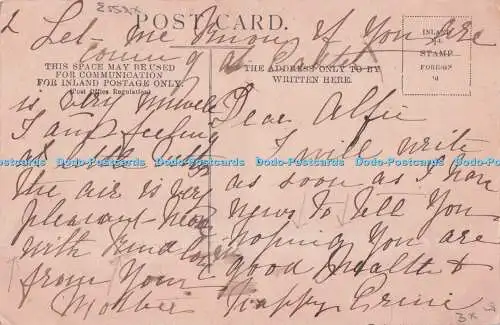 25532x
2
POST CARD.
Let me know if you are
coming
THIS SPACE MAY BE USED
FOR COMMUNICATION
FOR INLAND POSTAGE ONLY.
(Post Office Regulation)
THE ADDRESS ONLY TO BE
WRITTEN HERE.
INLAND
½d
STAMP
FOREIGN
1d
Dear Alfie
I will write
as soon as I have
news to tell you
hoping you are
good health &
happy
is very
I am feeling
a little better
the air is very
pleasant here
with kind love
from your
Mother
3x
Dodo-Postcards Dodo-Postcards Dodo-Postcards Dodo-Postcards
Dodo-Postcards Dodo-Postcards Dodo-Postcards Dodo-Postcards
Dodo-Postcards Dodo-Postcards Dodo-Postcards Dodo-Postcards